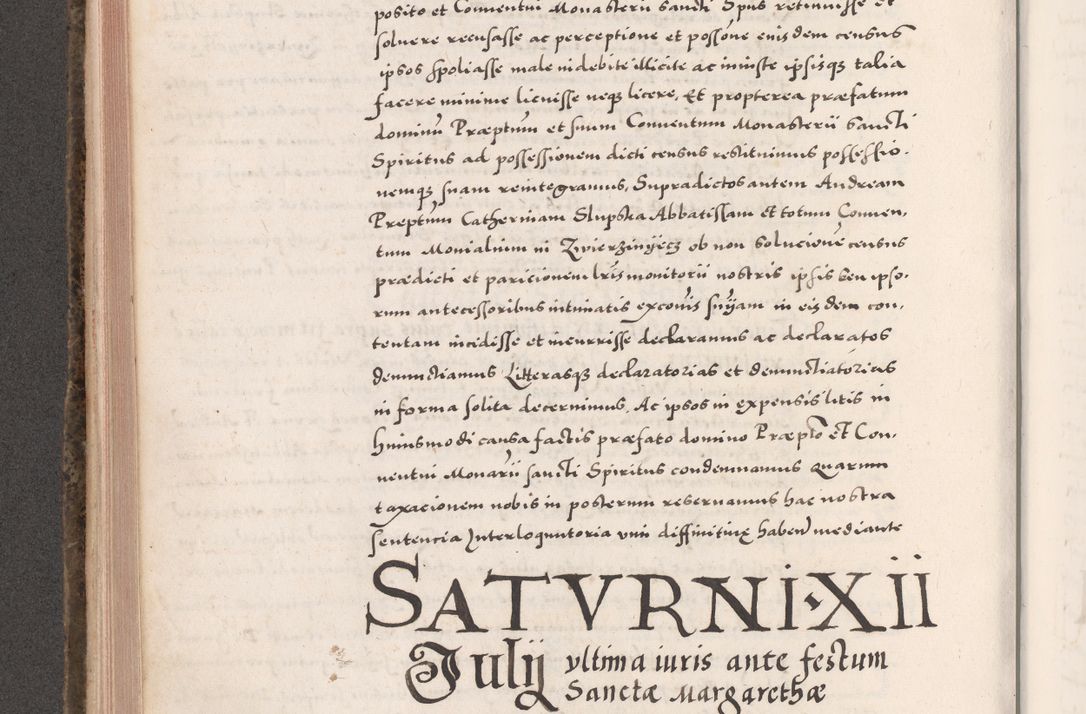 posito et Conuentui Monasterii Sancti Spüs retinuisse et
soluere recusasse ac perceptione et possone eiusdem census
ipsos spoliasse male indebite illicite ac iniuste ipsisq3 talia
facere minime licuisse neq3 licere, Et propterea præfatum
dominũ Præptum et suum Conuentum Monasterii Sancti
Spiritus ad possessionem dicti census restituimus possessio-
nemq3 suam reintegramus, Supradictos autem Andream
Preptum Catherinam Slupska Abbatissam et totum Conuen-
tum Monialium in Zwierziniecz ob non Solucionẽ census
prædicti et paricionem lrarũ monitorii nostris ipsis seu ipso-
rum antecessoribus intimatis excoũis snỹam in eisdem con-
tentam incidisse et incurrisse declaramus ac declaratos
denunctiamus Litterasq3 declaratorias et denunctiatorias
in forma solita decernimus, Ac ipsos in expensis litis in
huiusmodi causa factis præfato domino Præpto et Con-
uentui Monarii sancti Spiritus condemnamus Quarum
taxacionem nobis in posterum reseruamus hac nostra
Sentencia Interloquutoria vim diffinitiuę haben mediante
SATVRNI·XII
Julij vltima iuris ante festum
Sanctæ Margarethæ